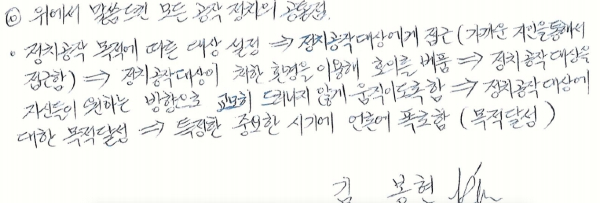 ⑥ 위에서 말씀드린 모든 공작 정치의 공통점.
• 정치공작 목적에 따른 대상 설정 ⇒ 정치공작대상에게 접근 (가까운 지인을 통해서
접근함) ⇒ 정치공작대상이 처한 환경을 이용해 호의를 베품 ⇒ 정치공작대상을
자신들이 원하는 방향으로 교묘히 드러나지 않게 움직이도록 함 ⇒ 정치공작대상에
대한 목적달성 ⇒ 특정한 중요한 시기에 언론에 폭로함 (목적달성)
김 봉현